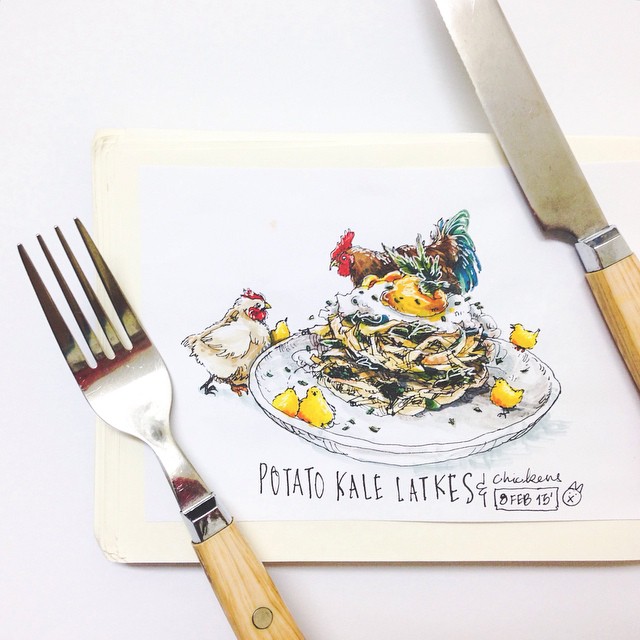 POTATO KALE LATKES & chickens
8 FEB 15'